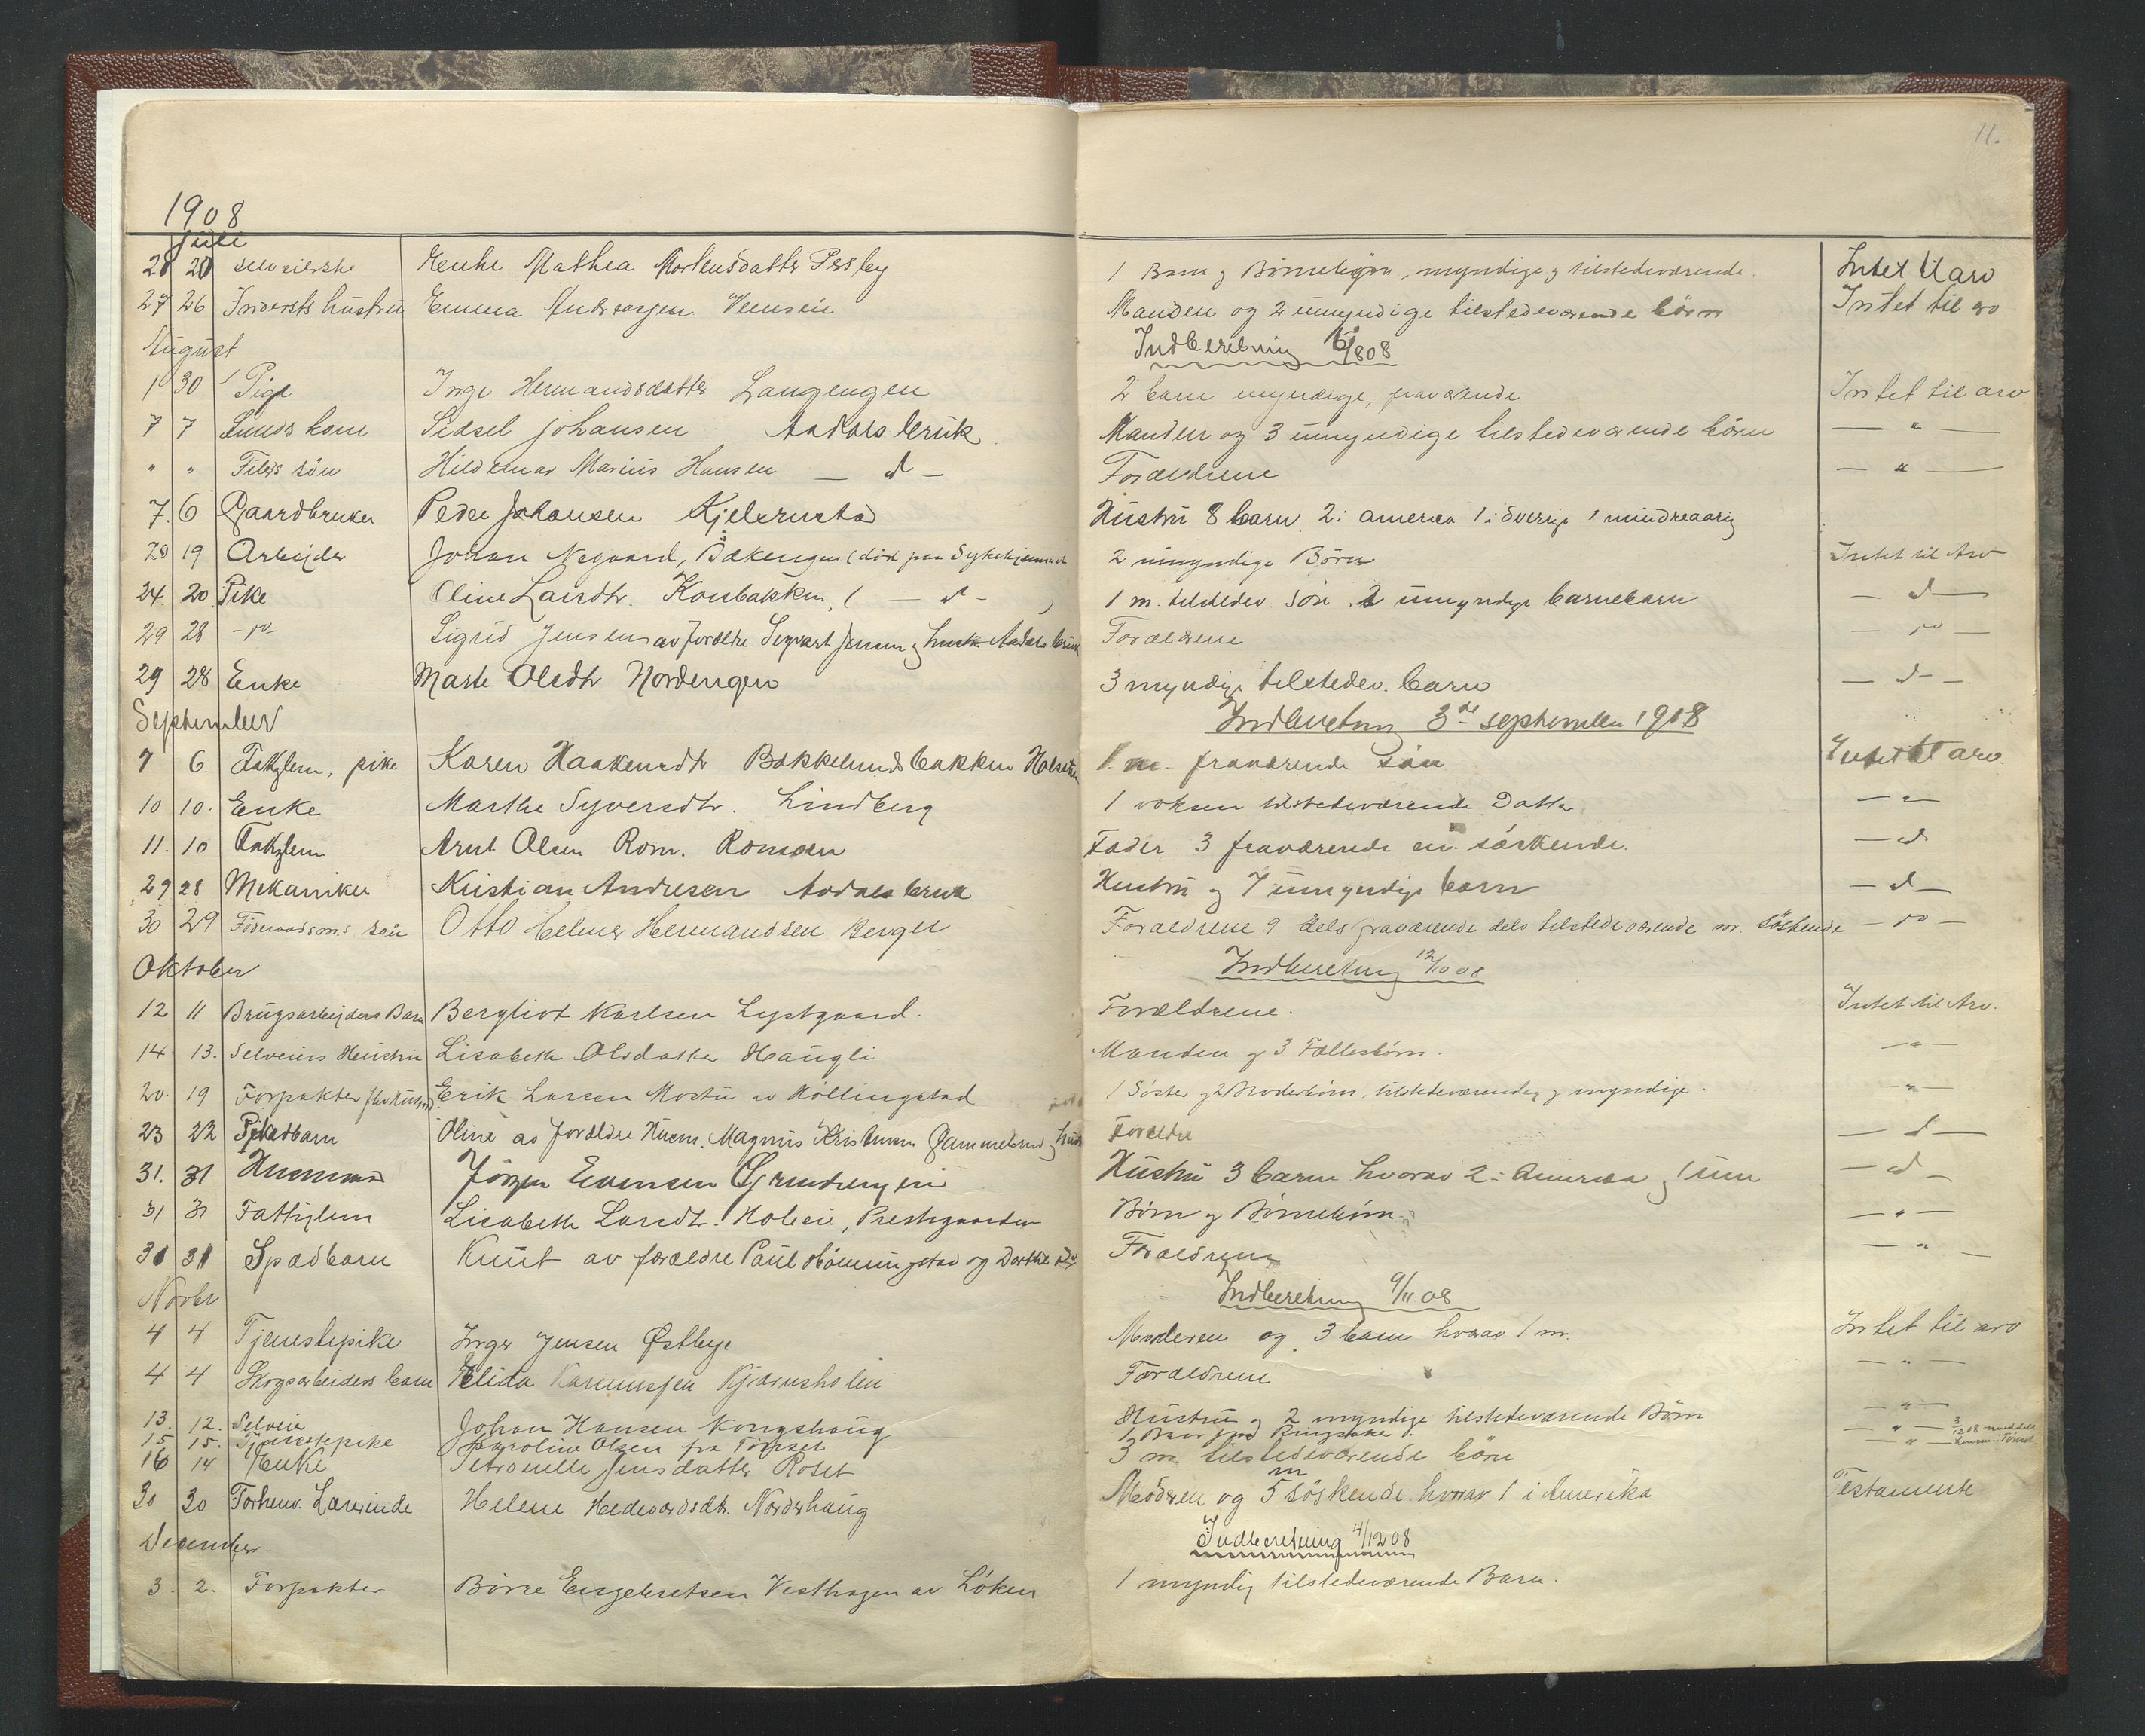 11.
1908
Juli
28 20 Selveierske Enke Mathea Mortensdatter 1 Barn og Børnebørn, myndige og tilstedeværende. Intet til arv
27 26 Indersts hustru Emma Andreassen Manden og 2 umyndige tilstedeværende børn Intet til arv
August Indberetning 808
1 30 Pige Inge Hermandsdatter Langengen 2 barn myndige, fraværende Intet til arv
7 7 Smeds kone Sidsel Johansen Aadalsbruk Manden og 3 umyndige tilstedeværende børn — " —
" " Filers søn Hildemar Marius Hansen — d — Forældrene — " —
7. 6 Gaardbruker Peder Johansen Kjelsrustad Hustru 8 barn 2 i america 1 i Sverige 1 mindreaarig
28 19 Arbeider Johan Negaard, Bækengen (død paa Sykehjemmet 2 umyndige Børn Intet til Arv
24 20 Pike Oline Larsdtr. Konbakken ( — d — ) 1 m. tilstedev. søn 2 umyndige barnebarn — d —
29 28 — " — Sigrid Jensen av forældre Sigvart Jensen og hustru Aadalsbruk Forældrene — " —
29 28 Enke Marte Olsdtr Nordengen 3 myndige tilstedev. barn — d —
September Indberetning 3de september 1908
7 6. Fattiglem, pike Karen Haakensdtr Bakkelundsbakken 1 m. fraværende søn Intet til arv.
10 10. Enke Marthe Syversdtr. Lindberg 1 voksen tilstedeværende Datter — " —
11. 10 Fattiglem Arnt Olsen Rom. Romsen Fader 3 fraværende m. søskende. — d —
29 28 Mekaniker Kristian Andresen Aadalsbruk Hustru og 7 umyndige barn — d —
30 29 Føderaadsm.s søn Otto Helmer Hermandsen Berger Forældrene 9 dels fraværende dels tilstedeværende m. søskende — " —
Oktober Indberetning 12/10 08
12 11 Brugsarbeiders Barn Bergliot Karlsen Lystgaard. Forældrene. Intet til Arv.
14 13. Selveiers Hustru Lisabeth Olsdatter Haugli Manden og 3 Fællesbørn. — " —
20. 19 Forpakter Erik Larsen Mostu av Kollingstad 1 Søster og 2 Broderbørn, tilstedeværende og myndige. — " —
23 22 Pikebarn Oline av forældre Husm. Magnus Kristiansen Gammelsrud og hustru Forældre — d —
31. 31 Husmand Jørgen Evensen Grundengen Hustru 3 barn hvorav 2 i America og 1 um — d —
31 31 Fattiglem Lisabeth Larsdtr. Holseie, Prestegaarden Børn og Børnebørn — " —
31 31 Spædbarn Knut av forældre Paul Hommingstad og Dorthe Forældrene — " —
Novbr Indberetning 9/11 08
4 4 Tjenestepike Inger Jensen Østbye Moderen og 3 barn hvorav 1 m. Intet til arv
4 4 Skogsarbeiders barn Elida Forældrene — " —
13. 12. Selveier Johan Hansen Kongshaug Hustru og 2 myndige tilstedeværende Børn — " —
15 15. Tjenestepike Karoline Olsen fra Ringsaker — " —
16 14 Enke Petronelle Jensdatter Roset 3 m. tilstedeværende børn — " —
30 30 Forhenv. Lærerinde Helene Hedevardsdtr. Norderhaug Moderen og 5 m søskende hvorav 1 i Amerika Testamente
December Indberetning 4/12 08
3. 2. Forpakter Børre Engebretsen Vesthagen av Løken 1 myndig tilstedeværende Barn.